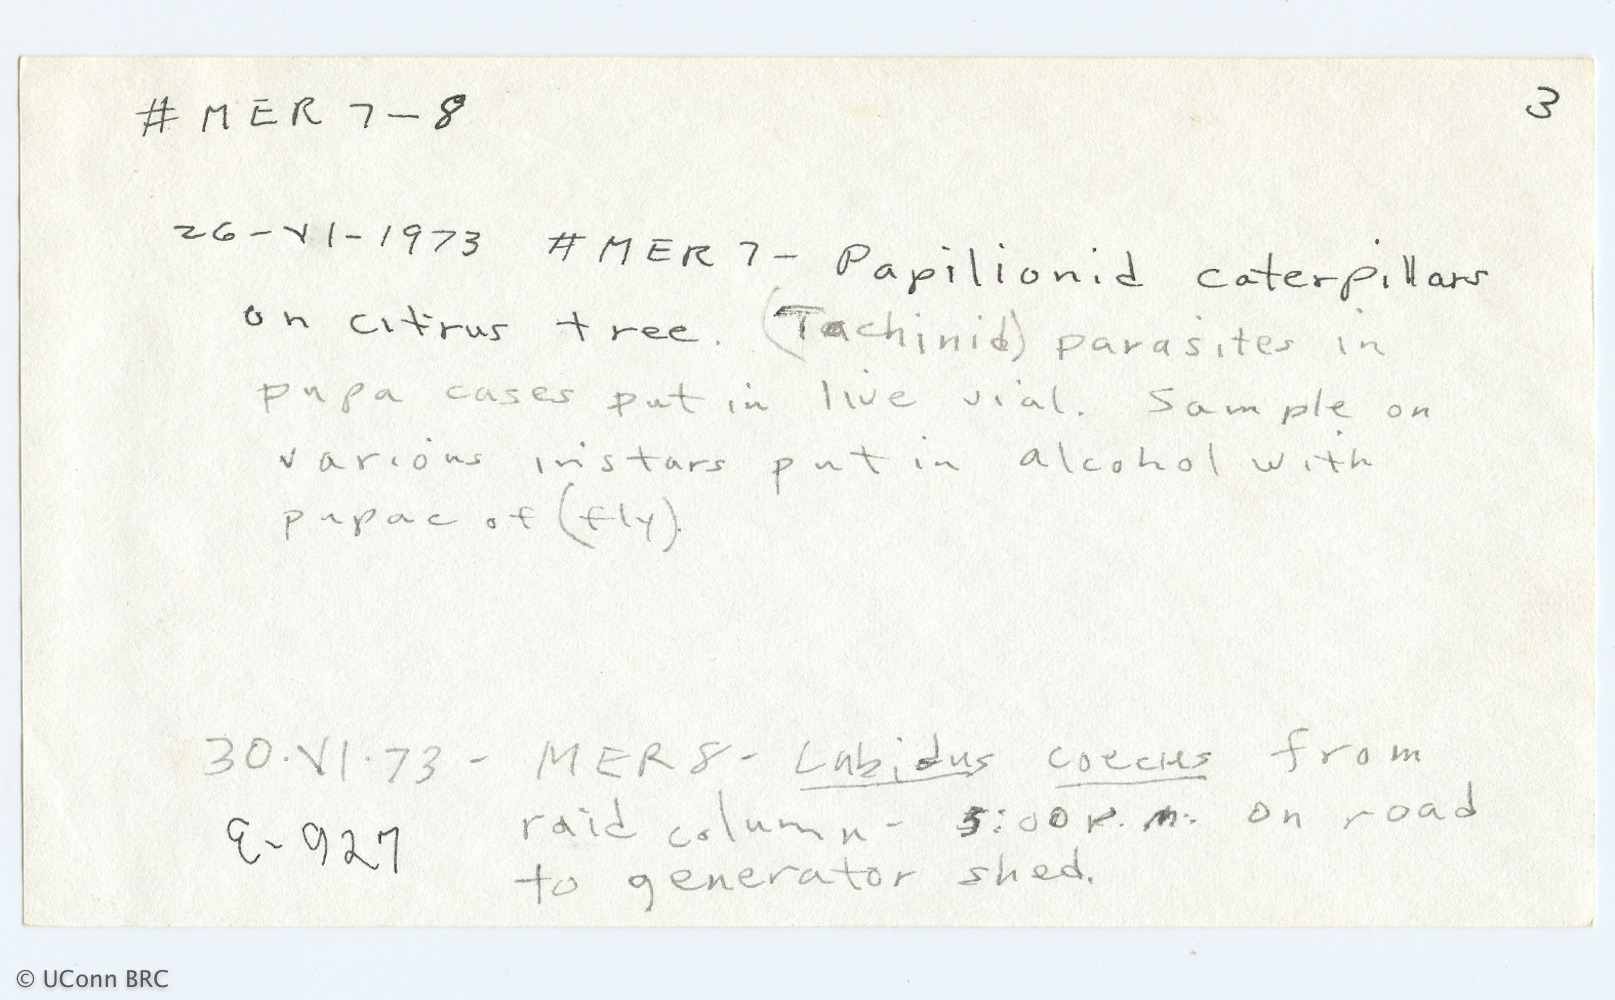 # MER 7-8
3
26-VI-1973 #MER 7- Papilionid caterpillars
on citrus tree. (Tachinid) parasites in
pupa cases put in live vial. Sample on
various instars put in alcohol with
pupae of (fly).
30.VI.73 - MER 8- Labidus coecus from
raid column - 5:00 P.M. on road
E-927
to generator shed.
© UConn BRC